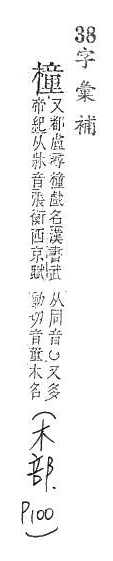 38字彙補
橦
又都盧尋橦戲名漢書武
帝紀从牀音張衡西京賦
从同音〇又多
動切音董木名
(木部.
P100)